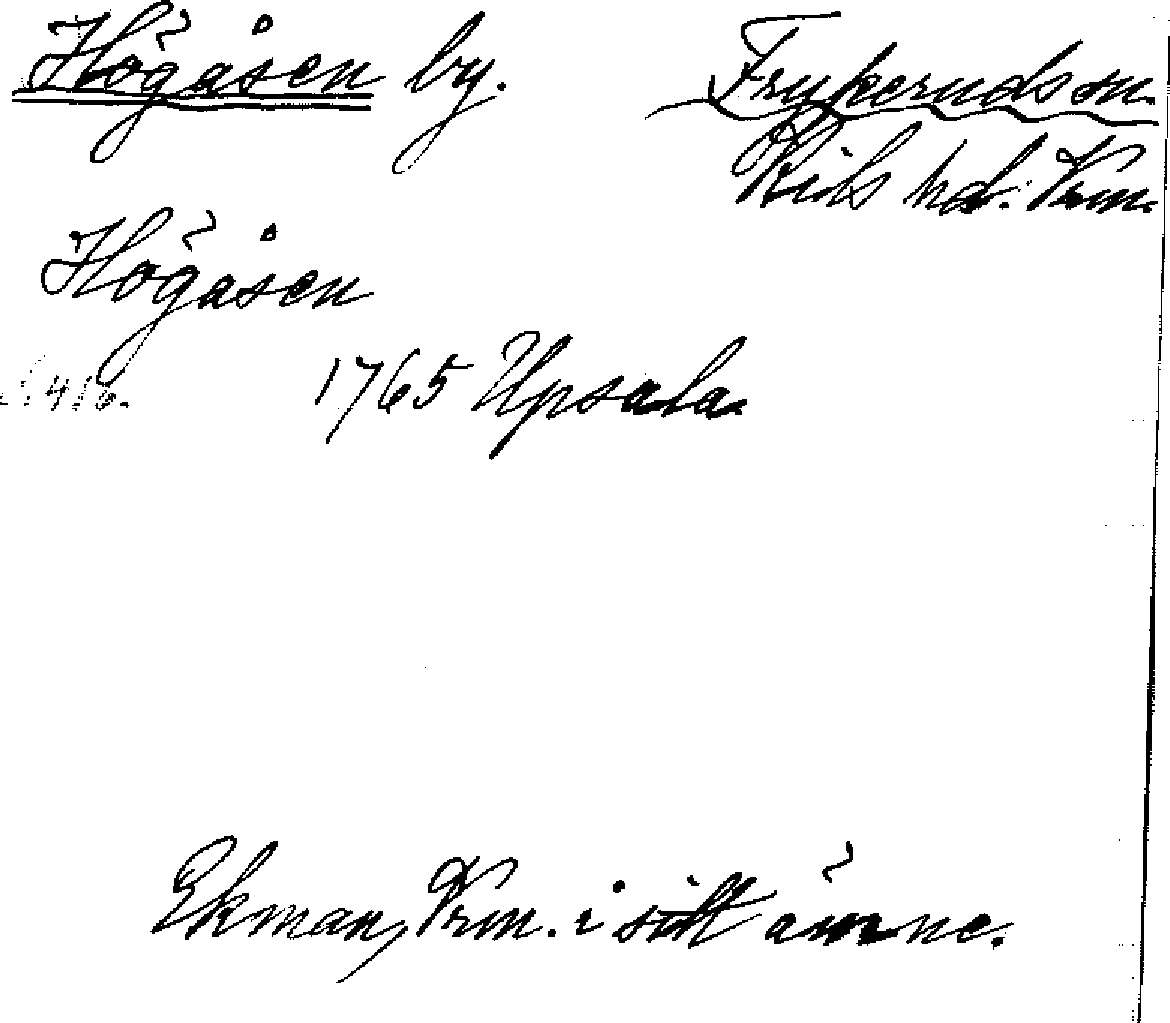 Högåsen by.
Frykeruds sn.
Kils hd. Vrm.
Högåsen
1765 Upsala
Ekman, Vrm. i sitt ämne.